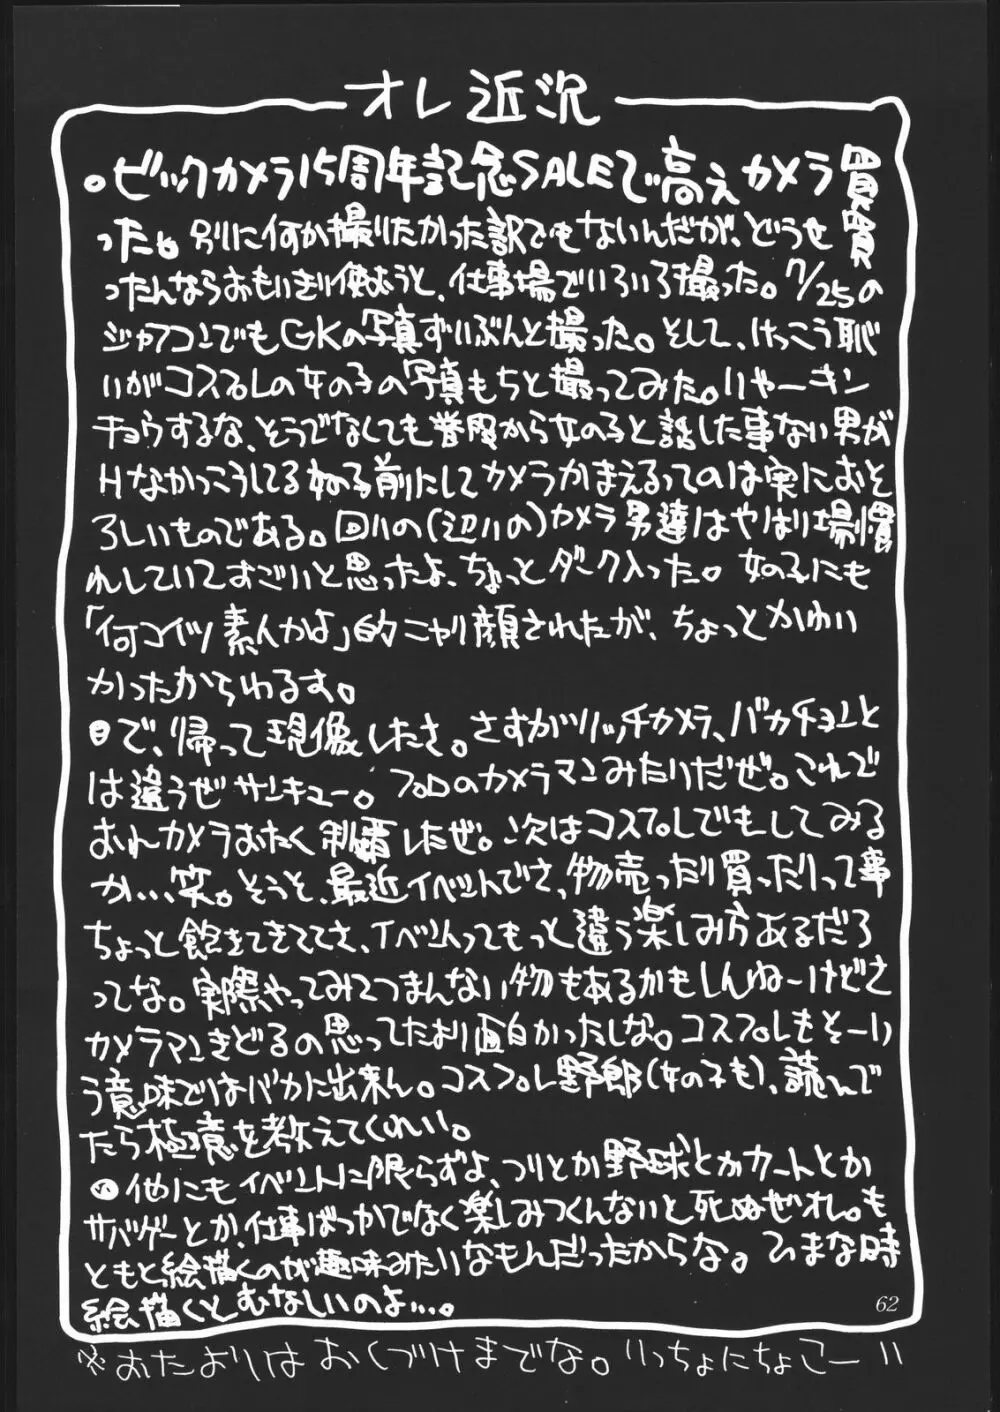 オレ近況
。ビックカメラ15周年記念SALEで高えカメラ買
った。別に何か撮りたかった訳でもないんだが、どうせ買
ったんならおもいきり使おうと、仕事場でいろいろ撮った。7/25の
ジャフコンでもGKの写真ずいぶんと撮った。そして、けっこう恥
いがコスプレの女の子の写真もちと撮ってみた。いやーキン
チョウするな、そうでなくても普段から女の子と話した事ない男が
Hなかっこうしてるねる前にしてカメラかまえるってのは実におそ
ろしいものである。回りの(辺りの)カメラ男達はやはり場慣
れしていてすごいと思ったよ、ちょっとダーク入った。女の子にも
「何コイツ素人かよ」的ニヤリ顔されたが、ちょっとかゆい
かったからゆるす。
日で、帰って現像したさ。さすがリッチカメラ、バカチョンと
は違うぜサンキュー。プロのカメラマンみたいだぜ。これで
おれカメラおたく制覇したぜ。次はコスプレでもしてみる
か…笑。そうそ、最近イベントでさ、物売ったり買ったりって事
ちょっと飽きてきててさ、イベントってもっと違う楽しみ方あるだろ
ってな。実際やってみてつまんない物もあるかもしんねーけどさ
カメラマンきどるの思ってたより面白かったしな。コスプレもそーい
う意味ではバカに出来ん。コスプレ野郎(女の子も)、読んで
たら極意を教えてくれい。
他にもイベントに限らずよ、つりとか野球とかカートとか
サバゲーとか、仕事ばっかでなく楽しみつくんないと死ぬぜオレ。も
ともと絵描くのが趣味みたいなもんだったからな。ひまな時
絵描くとむなしいのよ…。
62
※おたよりはおくづけまでな。いっちょにちょこーい